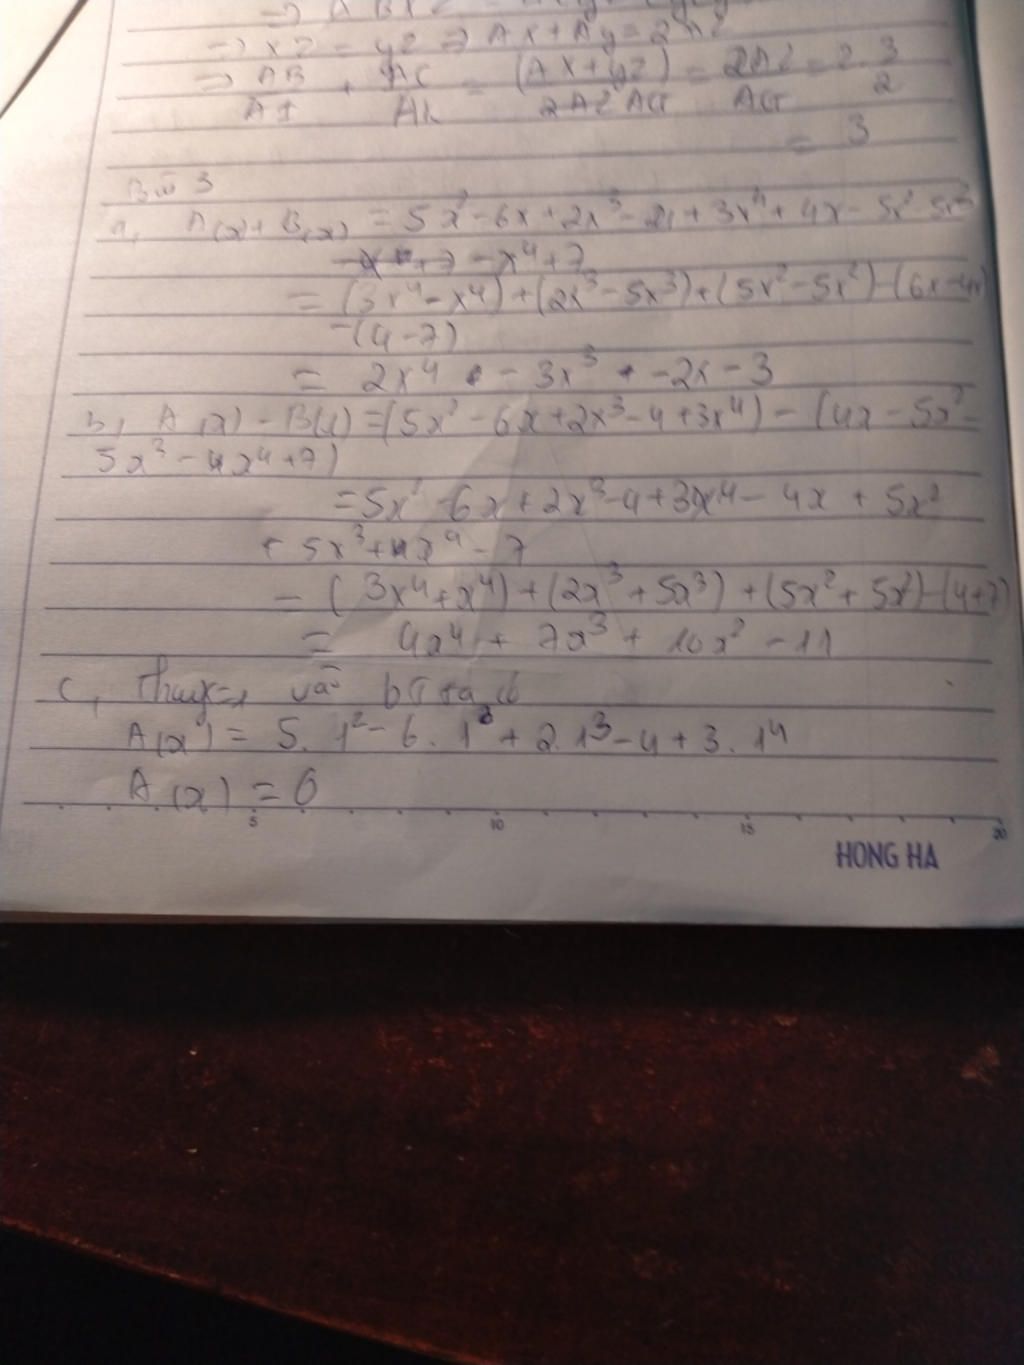 ⇒ xz = yz ⇒ Ax + Ay = 2Az
⇒ AB/AI + AC/AK = (Ax + yz)/2Az AG = 2Az/AG = 2.3/2
= 3
Bài 3
a, A(x) + B(x) = 5x² - 6x + 2x³ - 4 + 3x⁴ + 4x - 5x² - 5x³
- x⁴ + 7
= (3x⁴ - x⁴) + (2x³ - 5x³) + (5x² - 5x²) - (6x - 4x)
- (4 - 7)
= 2x⁴ - 3x³ - 2x - 3
b, A(x) - B(x) = (5x² - 6x + 2x³ - 4 + 3x⁴) - (4x - 5x² -
5x³ - x⁴ + 7)
= 5x² - 6x + 2x³ - 4 + 3x⁴ - 4x + 5x²
+ 5x³ + x⁴ - 7
= (3x⁴ + x⁴) + (2x³ + 5x³) + (5x² + 5x²) - (4 + 7)
= 4x⁴ + 7x³ + 10x² - 11
c, Thay x = 1 vào
A(x) = 5.1² - 6.1 + 2.1³ - 4 + 3.1⁴
A(x) = 0
5 10 15 20
HONG HA